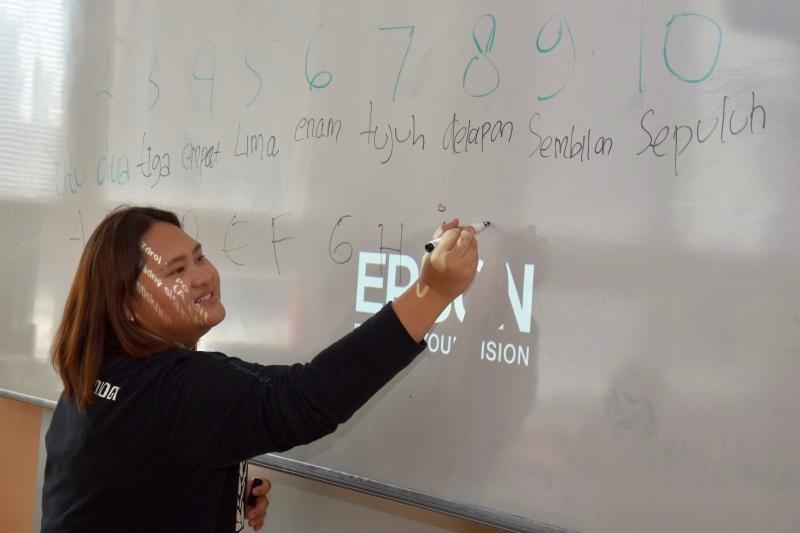 2 3 4 5 6 7 8 9 10
dua tiga empat Lima enam tujuh delapan Sembilan Sepuluh
A D E F G H i
EPSON
VISION